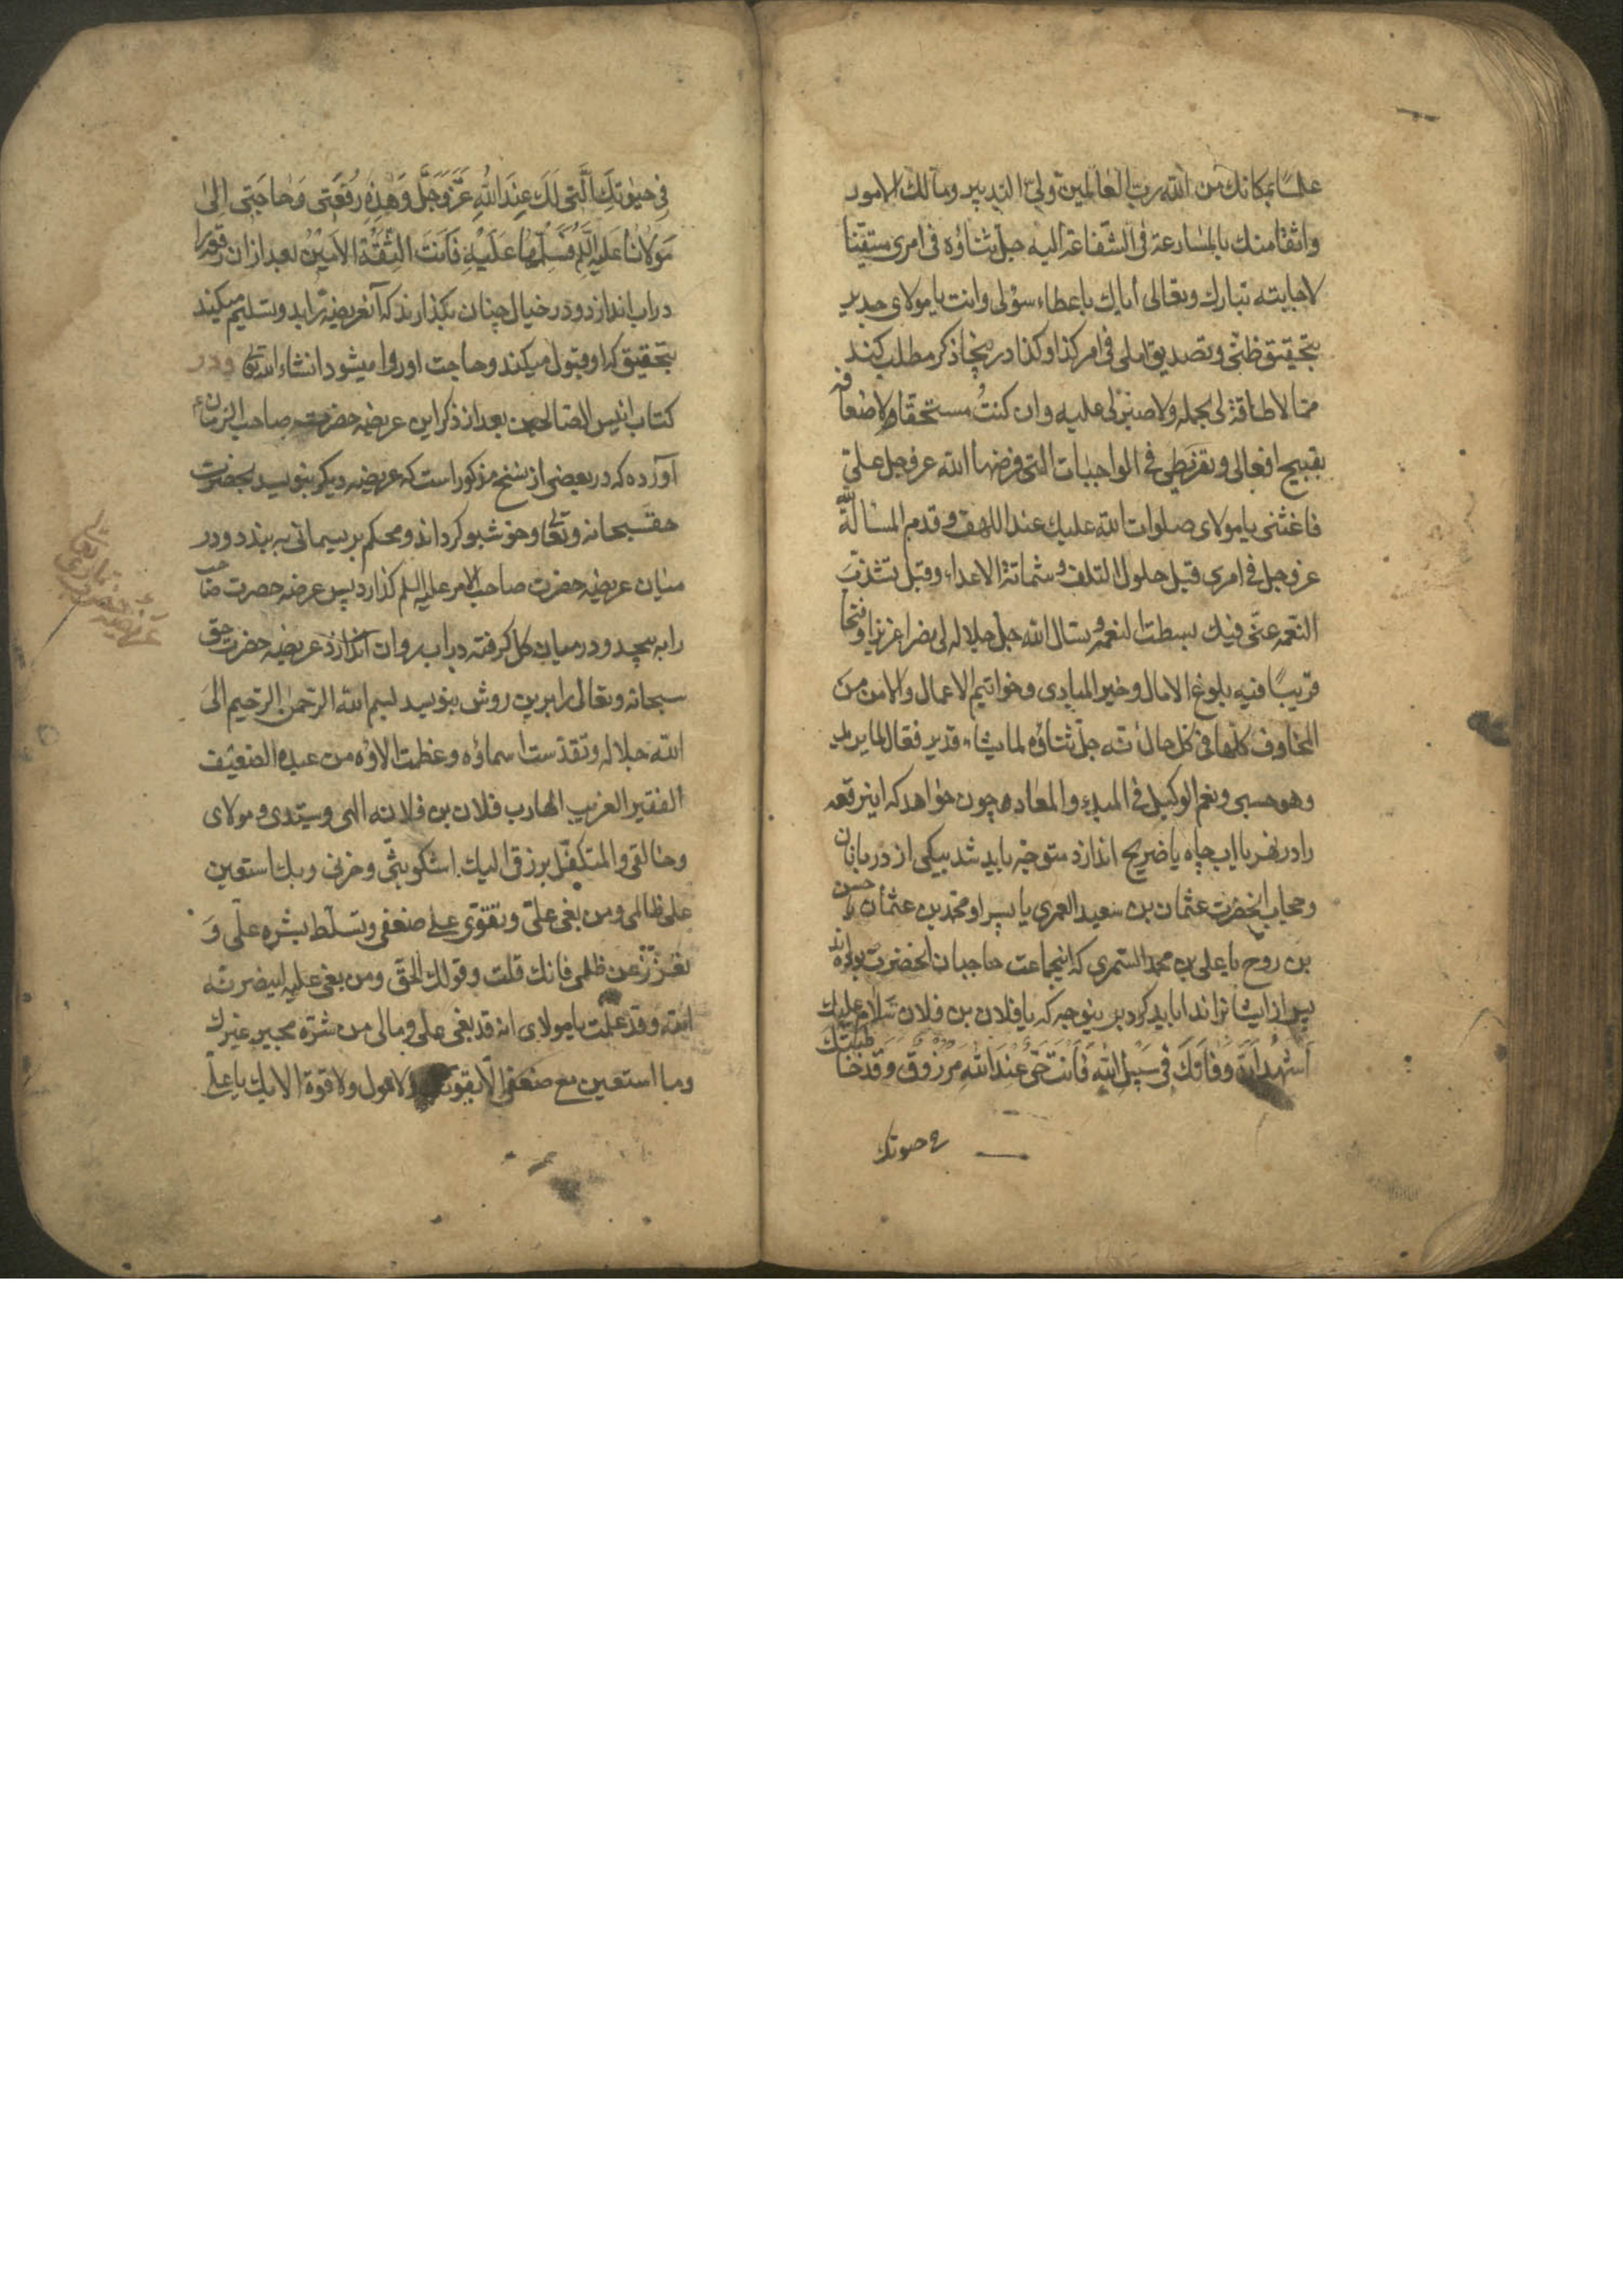 علما بمكانك من الله رب العالمين ولىّ التدبير ومالك الامور
واثقا منك بالمسارعة فى الشفاعة اليه جل ثناؤه فى امرى متيقنا
لاجابته تبارك وتعالى اياك باعطاء سؤلى وانت يا مولاى جدير
بتحقيق ظنى وتصديق املى فى امر كذا وكذا در ينجا ذكر مطلب كند
مما لا طاقة لى بحمله ولا صبر لى عليه وان كنتُ مستحقا له ولاضعافه
بقبيح افعالى وتفريطى فى الواجبات التى فرضها الله عز وجل علىّ
فاغثنى يا مولاى صلوات الله عليك عند اللهف وقدم المسألة لله
عز وجل فى امرى قبل حلول التلف و شماتة الاعداء وقبل
النعمه عنّى فبك بسطت النعمة وسئال الله جل جلاله لى نصرا عزيزا وفتحا
قريبًا فيه بلوغ الامال وخير المبادى وخواتيم الاعمال والامن من
المخاوف كلها فى كل حال انه جل ثناؤه لما يشاء قدير فعال لما يريد
وهو حسبى ونعم الوكيل فى المبدء والمعاد چون خواهد كه اينرقعه
را در نهر يا اب چاه يا ضريح اندازد متوجه بايد شد بيكى از دربانان
وحجاب انحضرت عثمان بن سعيد العمرى يا پسر او محمد بن عثمان يا حسين
بن روح يا على بن محمد السمرى كه اينجماعت حاجبان انحضرت بوده اند
پس از ايشانرا ندا بايد كرد برينوجه كه يا فلان بن فلان سلام عليك
اَشهد انّ وفاتك فى سَبيل الله فَاَنت حىّ عندَ الله مرزوق وقد خاطبتك
فى حيوتك
فى حيوتك الّتى لك عند الله عزّ وجلّ وَهٰذِهِ رُقعَتى وَحاجَتى اِلىٰ
مَولانا عليه السلم فسلّمها عَلَيْهِ فَاَنتَ الثِّقَةُ الاَمينُ بعد ازان رقعه را
در اب اندازد و در خيال چنان بگذارند كه آنعريضه را بد وتسليم ميكند
بتحقيق كه او قبول ميكند وحاجت او روا ميشود انشاء الله تعالى و در
كتاب انيس الصالحين بعد از ذكر اين عريضه حضرت صاحب الزمان ع
آورده كه در بعضى از نسخ مذكور است كه عريضه ديكر بنويسد بحضرت
حق سبحانه وتعالى وخوشبو كرداند ومحكم بريسمانى به بندد ودر
ميان عريضه حضرت صاحب الامر عليه السلم كذارد پس عرضه حضرت صاحب
را به پيچد و در ميان كل كرفته در اب روان اندازد عريضه حضرت حق
سبحانه وتعالى را برين روش بنويسد بسم الله الرحمن الرحيم الى
الله جلاله وتقدست اسماؤه وعظمت الاؤه من عبده الضعيف
الفقير الغريب الهارب فلان بن فلانه الهى وسيدى ومولاى
وخالقى والمتكفل برزقى اليك اشكو بثى وحزنى وبك استعين
على ظالمى ومن بغى علىّ وتقوّى على ضعفى وتسلّط بشره علىّ وَ
تعزز عن ظلمى فانك قلت وقولك الحق ومن بغى عليه لينصرنّه
الله وقد علمت يا مولاى انه قد بغى على ومالى من شره مجير غيرك
وما استعين مع ضعفى الا بقوتك ولا حول ولا قوة الا بك يا على